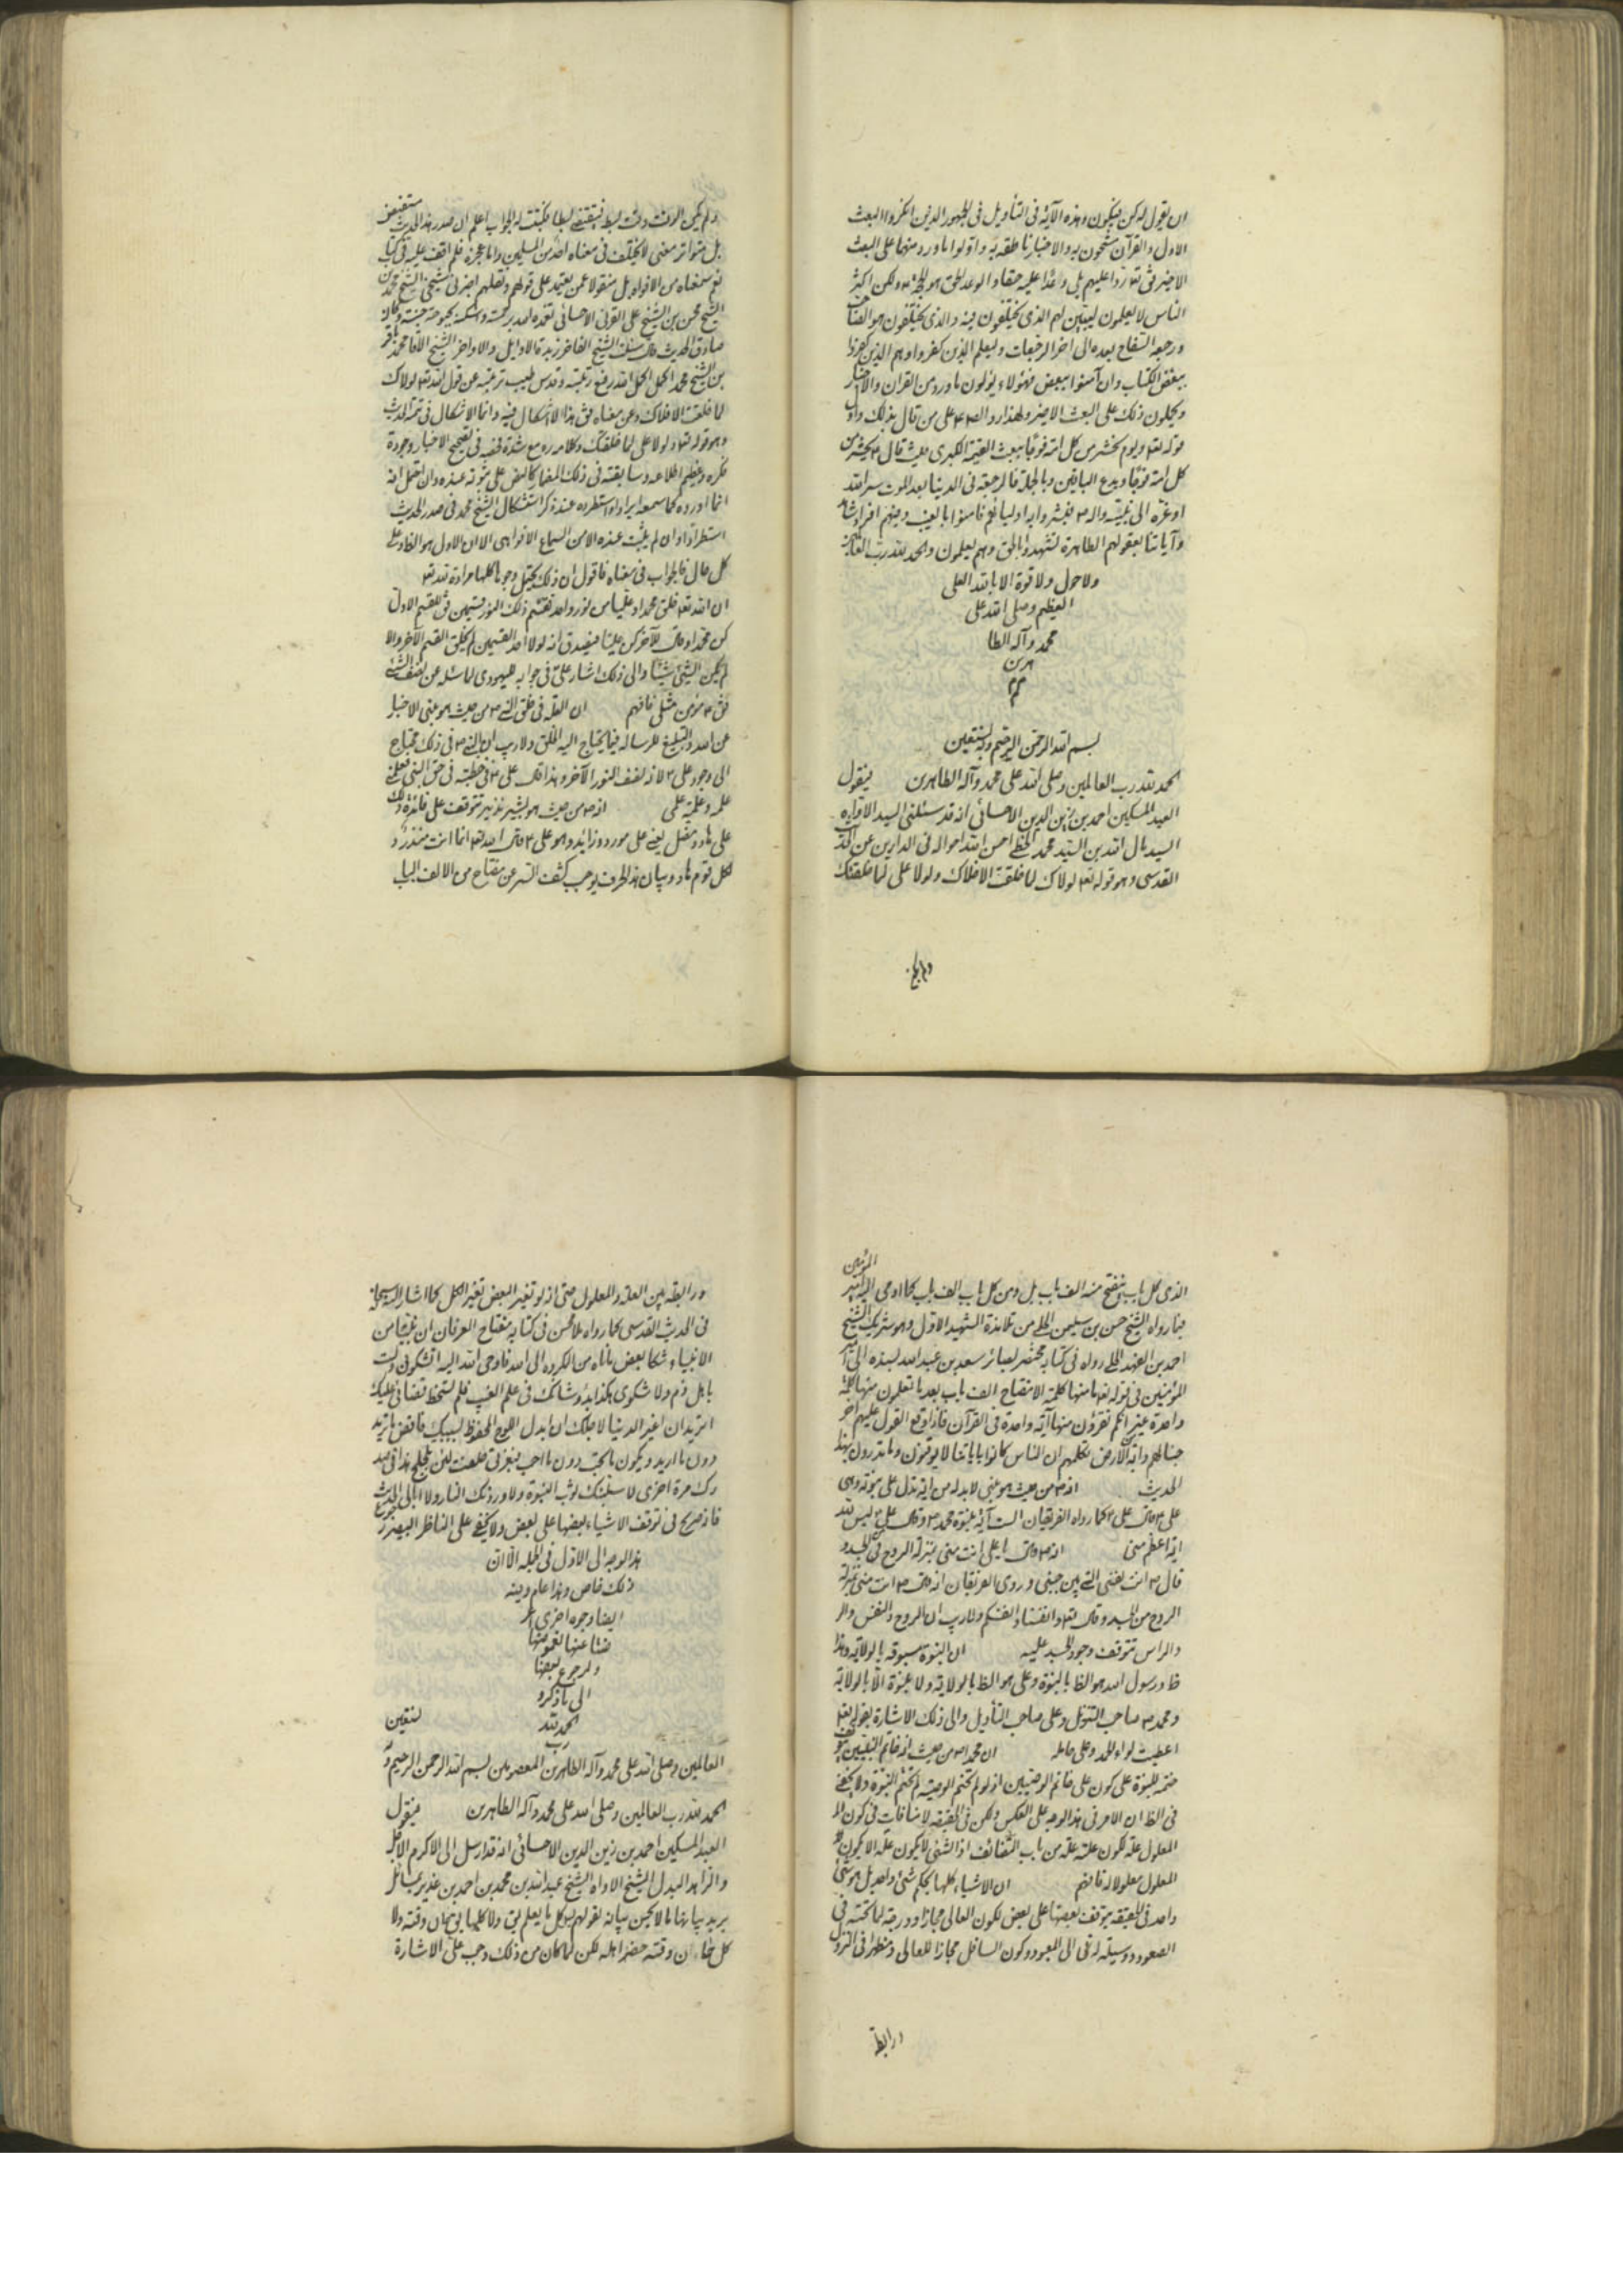 ان يقول له كن فيكون وهذه الآية فى التأويل فى الجمهور الذين انكروا البعث
الاول والقرآن مشحون به والاخبار ناطقة به واولوا ما ورد منها على البعث
الاخير فق تع ردا عليهم بلى وعدا عليه حقا والوعد الحق هو ولكن اكثر
الناس لا يعلمون ليبين لهم الذى يختلفون فيه والذى يختلفون هو
ورجعة السفاح بعده الى اخر الرجعات وليعلم الذين كفروا وهم الذين كفروا
ببعض الكتاب وان آمنوا ببعض فهؤلاء يؤلون ما ورد من القران والاخبار
ويحملون ذلك على البعث الاخير ولهذا رد الص ع على من قال بذلك واول
قوله تع ويوم نحشر من كل امة فوجا ببعث القيمة الكبرى حيث قال ع يحشر من
كل امة فوجا ويدع الباقين وبالجملة فالرجعة فى الدنيا بعد الموت سر الله
الى نبيه واله ص اوليائهم فامنوا بالغيب
وآياتنا بعقولهم الطاهرة لتشهدوا بالحق وهم يعلمون والحمد لله رب العالمين
ولا حول ولا قوة الا بالله العلى
العظيم وصلى الله على
محمد وآله الطا
هرين
م م
بسم الله الرحمن الرحيم وبه نستعين
الحمد لله رب العالمين وصلى الله على محمد وآله الطاهرين فيقول
العبد المسكين احمد بن زين الدين الاحسائى انه قد سئلنى السيد الاواه
السيد مال الله بن السيد محمد الخطى احسن الله احواله فى الدارين عن
القدسى وهو قوله تع لولاك لما خلقت الافلاك ولولا على لما خلقتك
ولم يكن
ولم يكن الوقت وقت بسط فيقتضى بسطا فكتبت له الجواب اعلم ان صدر هذا الحديث مستفيض
بل متواتر معنى لا يختلف فى معناه احد من المسلمين واما عجزه فلم اقف عليه فى كتاب
نعم سمعناه من الافواه بل منقولا عمن يعتمد على قولهم ونقلهم اخبرنى شيخى الشيخ محمد بن
الشيخ محسن بن الشيخ على القرنى الاحسائى تغمده الله برحمته واسكنه بحبوحة جنته وكان
صادق الحديث قال سئلت الشيخ الفاخر زبدة الاوايل والاواخر الشيخ الآقا محمد باقر
بن الشيخ محمد اكمل اكمل الله رفع رتبته وقدس طيب تربته عن قول الله تع لولاك
لما خلقت الافلاك وعن معناه فق هذا لا اشكال فيه وانما الاشكال فى تتمة الحديث
وهو قوله تع ولولا على لما خلقتك وكلامه ره مع شدة فحصه فى تصحيح الاخبار وجودة
فكره وعظيم اطلاعه وسابقته فى ذلك المضمار كالنص على ثبوته عنده وان احتمل انه
انما اورده كما سمعه ايرادا واستطرده عند ذكر استشكال الشيخ محمد فى صدر الحديث
استطرادا وان لم يثبت عنده الا من السماع الافواهى الا ان الاول هو الظ وعلى
كل حال فالجواب فى معناه فاقول ان ذلك يحتمل وجوها كلها مرادة لله تع
ان الله تع خلق محمدا وعليا من نور واحد فقسم ذلك النور قسمين فق للقسم الاول
كن محمدا وقال للآخر كن عليا فيصدق انه لولا احد القسمين لم يخلق القسم الآخر والا
لم يكن الشئ شيئا والى ذلك اشار على ع فى جوابه لليهودى لما سئله عن نصف الشئ
فق ع مؤمن مثلى فافهم ان العلة فى خلق النبى ص من حيث هو نبى الاخبار
عن الله والتبليغ للرسالة فيما يحتاج اليه الخلق ولا ريب ان النبى ص فى ذلك محتاج
الى وجود على ع لانه نصف النور الآخر ولهذا قال على ع فى خطبته فى حق النبى فعلمنى
علمه وعلمته علمى انه ص من حيث هو بشير نذير تتوقف على فائدة ذلك
على هاد ومضل يعنى على مورد وزايد وهو على ع قال الله تع انما انت منذر و
لكل قوم هاد وبيان هذا الحرف يوجب كشف السر عن مفتاح من الالف الباب
الذى كل باب ينفتح منه الف باب بل ومن كل باب الف باب كما اومى اليه امير المؤمنين
فيما رواه الشيخ حسن بن سليمن الحلى من تلامذة الشهيد الاول وهو شريك الشيخ
احمد بن الفهد الحلى رواه فى كتابه مختصر بصائر سعد بن عبد الله بسنده الى امير
المؤمنين فى قوله تع منها كلمة الا مفتاح الف باب بعد ما تعلمون منها كلمة
واحدة غير انكم تقرؤن منها آية واحدة فى القرآن فاذا وقع القول عليهم اخر
جنا لهم دابة من الارض تكلمهم ان الناس كانوا باياتنا لا يوقنون وما تدرون بها
الحديث انه ص من حيث هو نبى لا بد له من اية تدل على نبوته وهى
على ع قال على ع كما رواه الفريقان انا آية نبوة محمد ص وقال على ع ليس لله
اية اعظم منى انه ص قال يا على انت منى بمنزلة الروح من الجسد و
قال ص انت نفسى التى بين جنبى وروى الفريقان انه قال ص انت منى بمنزلة
الروح من الجسد وقال تع وانفسنا وانفسكم ولا ريب ان الروح والنفس
والراس تتوقف وجود الجسد عليه ان النبوة مسبوقة بالولاية وهذا
ظ ورسول الله هو الظ بالنبوة وعلى هو الظ بالولاية ولا نبوة الا بالولاية
ومحمد ص صاحب التنزيل وعلى صاحب التأويل والى ذلك الاشارة بقوله ص
اعطيت لواء الحمد وعلى حامله ان محمدا ص من حيث انه خاتم النبيين تتوقف
ختمه للنبوة على كون على خاتم الوصيين اذ لو لم تختم الوصية لم تختم النبوة ولا يخفى
فى الظ ان الامر فى هذا الوجه على العكس ولكن فى الحقيقة لا منافات فى كون
المعلول علة لكون علته علة من باب التضائف اذ الشئ لا يكون علة الا بكون
المعلول معلولا له فافهم ان الاشياء كلها بحكم شئ واحد بل هو شئ
واحد فى الحقيقة يتوقف بعضها على بعض لكون العالى مجازا ودرجة لما تحته فى
الصعود ووسيلة له فى الى المعبود وكون السافل مجازا للعالى ومظهرا فى النزول
ورابطة
ورابطة بين العلة والمعلول حتى انه لو تغير البعض تغير الكل كما اشار اليه سبحانه
فى الحديث القدسى كما رواه ملا محسن فى كتابه مفتاح العرفان ان نبيا من
الانبياء شكا بعض ما ناله من المكروه الى الله فاوحى الله اليه اتشكونى ولست
باهل ذم ولا شكوى هكذا بدو شانك فى علم الغيب فلم تسخط قضائى عليك
اتريد ان اغير الدنيا لاجلك او ابدل اللوح المحفوظ بسببك فاقضى ما تريد
دون ما اريد ويكون ما تحب دون ما احب فبعزتى حلفت لئن تلجلج هذا فى صد
رك مرة اخرى لاسلبنك ثوب النبوة ولاوردنك النار ولا ابالى الحديث
فانه صريح فى توقف الاشياء بعضها على بعض ولا يخفى على الناظر البصير رجوع
هذا الوجه الى الاول فى الجملة الا ان
ذلك خاص وهذا عام وفيه
ايضا وجوه اخرى
لغموضها
ولرجوع بعضها
الى ما ذكر و
الحمد لله
رب
العالمين وصلى الله على محمد وآله الطاهرين المعصومين بسم الله الرحمن الرحيم وبه نستعين
الحمد لله رب العالمين وصلى الله على محمد وآله الطاهرين فيقول
العبد المسكين احمد بن زين الدين الاحسائى انه قد ارسل الى الاكرم الاجل
والزاهد البدل الشيخ الاواه الشيخ عبد الله بن محمد بن احمد بن غدير بمسائل
يريد بيانها مما لا يحسن بيانه لقولهم ما كل ما يعلم يق ولا كلما يق حان وقته ولا
كل ما حان وقته حضر اهله لكن لما كان من ذلك وجب على الاشارة